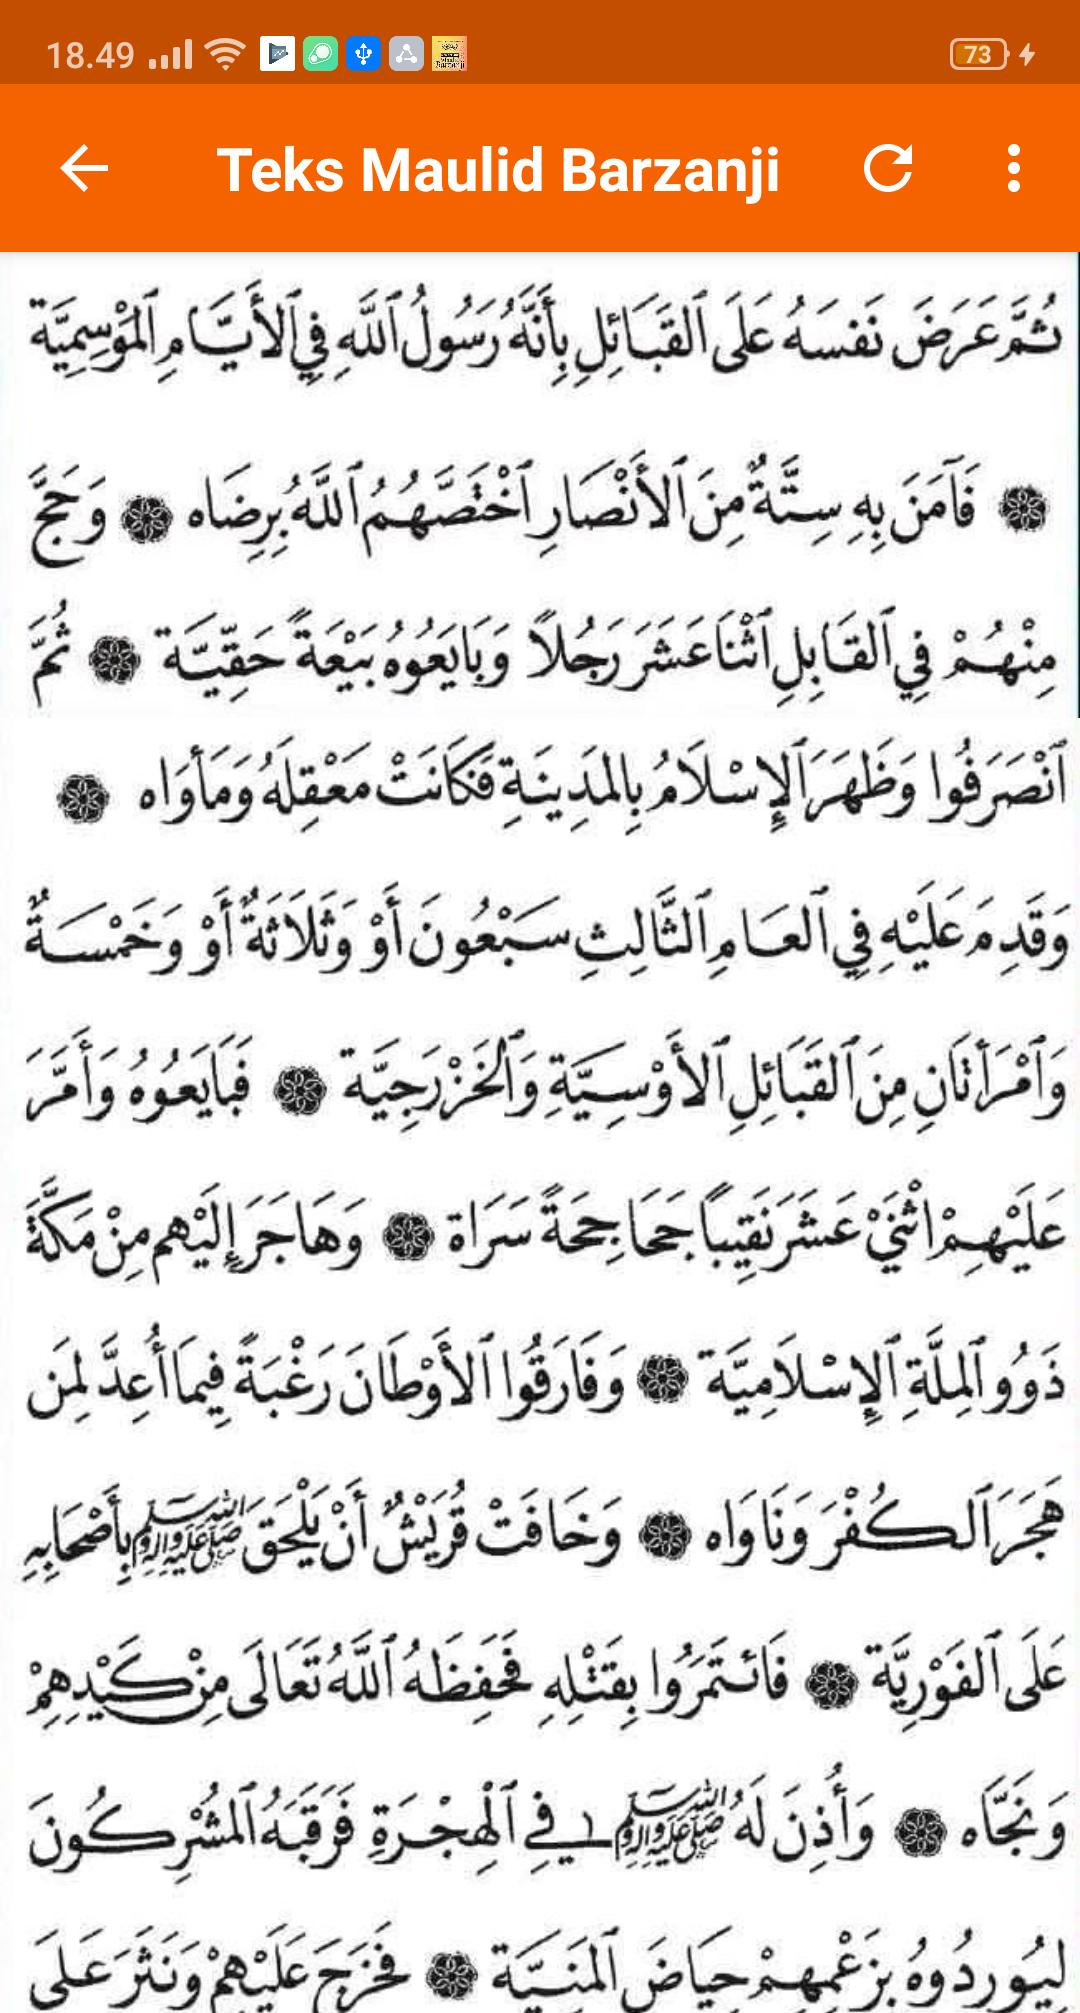 18.49
73
Teks Maulid Barzanji
ثُمَّ عَرَضَ نَفسَهُ عَلَى ٱلقَبَائِلِ بِأَنَّهُ رَسُولُ ٱللَّهِ فِي ٱلأَيَّامِ ٱلمَوْسِمِيَّة
۞ فَآمَنَ بِهِ سِتَّةٌ مِنَ ٱلأَنْصَارِ ٱخْتَصَّهُمُ ٱللَّهُ بِرِضَاه ۞ وَحَجَّ
مِنْهُمْ فِي ٱلقَابِلِ ٱثْنَا عَشَرَ رَجُلاً وَبَايَعُوهُ بَيْعَةً حَقِّيَّة ۞ ثُمَّ
ٱنْصَرَفُوا وَظَهَرَ ٱلإِسْلَامُ بِالمَدِينَةِ فَكَانَتْ مَعْقِلَهُ وَمَأوَاه ۞
وَقَدِمَ عَلَيْهِ فِي ٱلعَامِ ٱلثَّالِثِ سَبْعُونَ أَوْ وَثَلَاثَةٌ أَوْ وَخَمْسَةٌ
وَٱمْرَأتَانِ مِنَ ٱلقَبَائِلِ ٱلأَوْسِيَّةِ وَٱلخَزْرَجِيَّة ۞ فَبَايَعُوهُ وَأَمَّرَ
عَلَيْهِمْ اثْنَيْ عَشَرَ نَقِيبًا جَحَاجِحَةً سَرَاة ۞ وَهَاجَرَ إِلَيْهِم مِنْ مَكَّةَ
ذَوُو ٱلمِلَّةِ ٱلإِسْلَامِيَّة ۞ وَفَارَقُوا ٱلأَوْطَانَ رَغْبَةً فِيمَا أُعِدَّ لِمَن
هَجَرَ ٱلكُفْرَ وَنَاوَاه ۞ وَخَافَتْ قُرَيْشٌ أَنْ يَلْحَقَ ﷺ بِأَصْحَابِهِ
عَلَى ٱلفَوْرِيَّة ۞ فَائتَمَرُوا بِقَتْلِهِ فَحَفِظَهُ ٱللَّهُ تَعَالَى مِنْ كَيْدِهِمْ
وَنَجَّاه ۞ وَأُذِنَ لَهُ ﷺ فِي ٱلْهِجْرَةِ فَرَقَبَهُ ٱلمُشْرِكُونَ
لِيُورِدُوهُ بِزَعْمِهِمْ حِيَاضَ ٱلمَنِيَّة ۞ فَخَرَجَ عَلَيْهِمْ وَنَثَرَ عَلَى